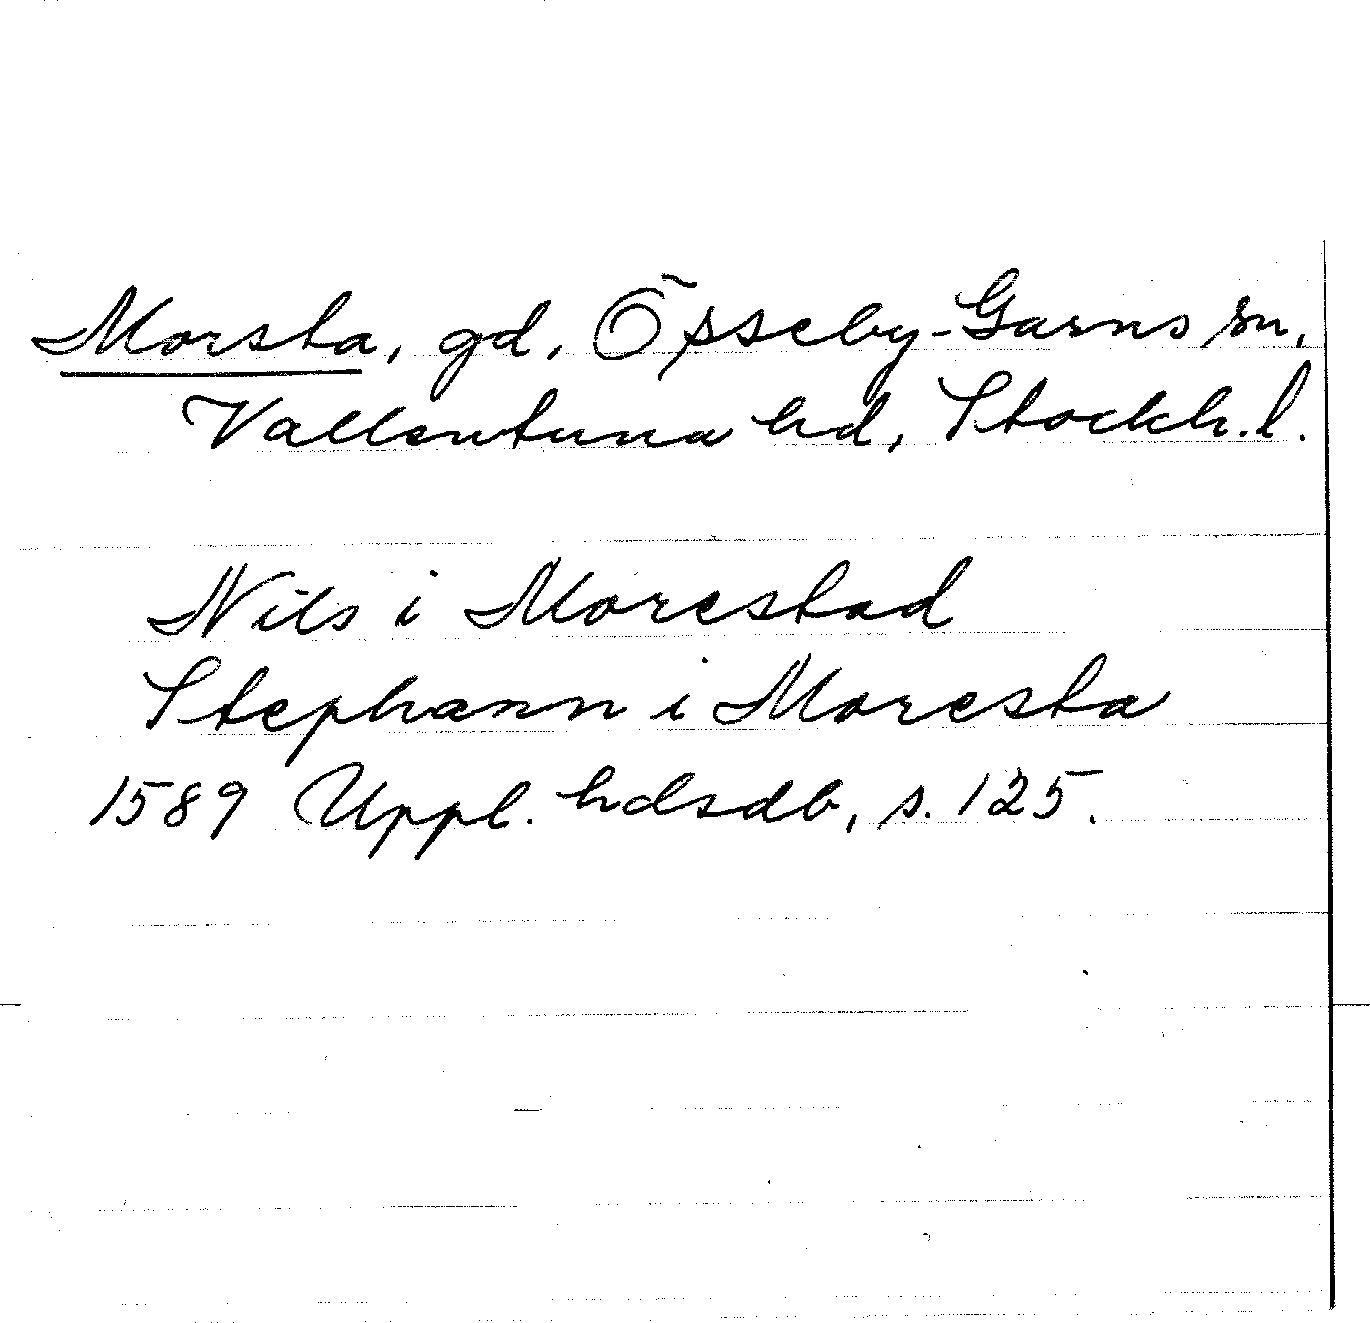 Morsta, gd, Össeby-Garns sn,
Vallentuna hd, Stockh. l.
Nils i Morestad
Stephann i Moresta
1589 Uppl. hdsdb, s. 125.